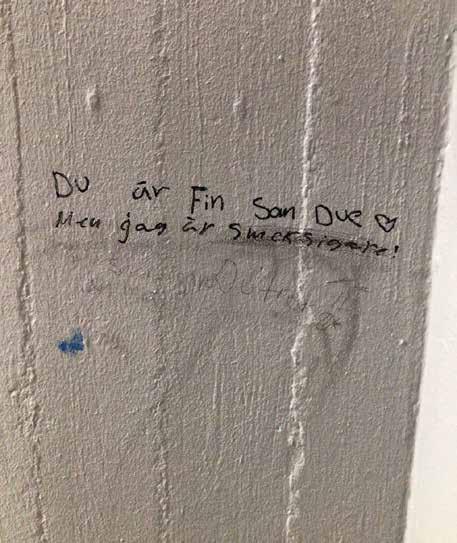 Du är Fin San Due ♡
Men jag är smeksigare!